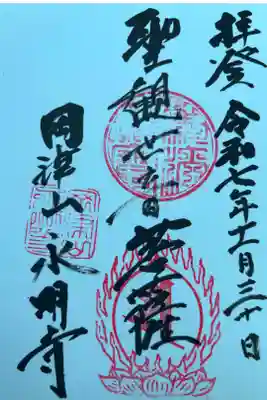 拝登 令和七年十一月三十日
聖観世音菩薩
岡津山 永明寺